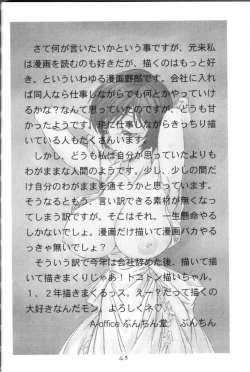 さて何が言いたいかという事ですが、元来私
は漫画を読むのも好きだが、描くのはもっと好
き。といういわゆる漫画野郎です。会社に入れ
ば同人なら仕事しながらでも何とかやっていけ
るかな？なんて思っていたのですが、どうも甘
かったようです。現に仕事しながらきっちり描
いている人もたくさんいます。
しかし、どうも私は自分が思っていたよりも
わがままな人間のようです。少し、少しの間だ
け自分のわがままを通そうかと思っています。
そうなるともう、言い訳できる素材が無くなっ
てしまう訳ですが、そこはそれ。一生懸命やる
しかないでしょ。漫画だけ描いて漫画バカやる
っきゃ無いでしょ？
そういう訳で今年は会社辞めた後、描いて描
いて描きまくりじゃあ！トコトン描いちゃル。
１、２年描きまくるっス。えー？だって描くの
大好きなんだモン。よろしくネ♡
A-office ぶんちん堂 ぶんちん
48